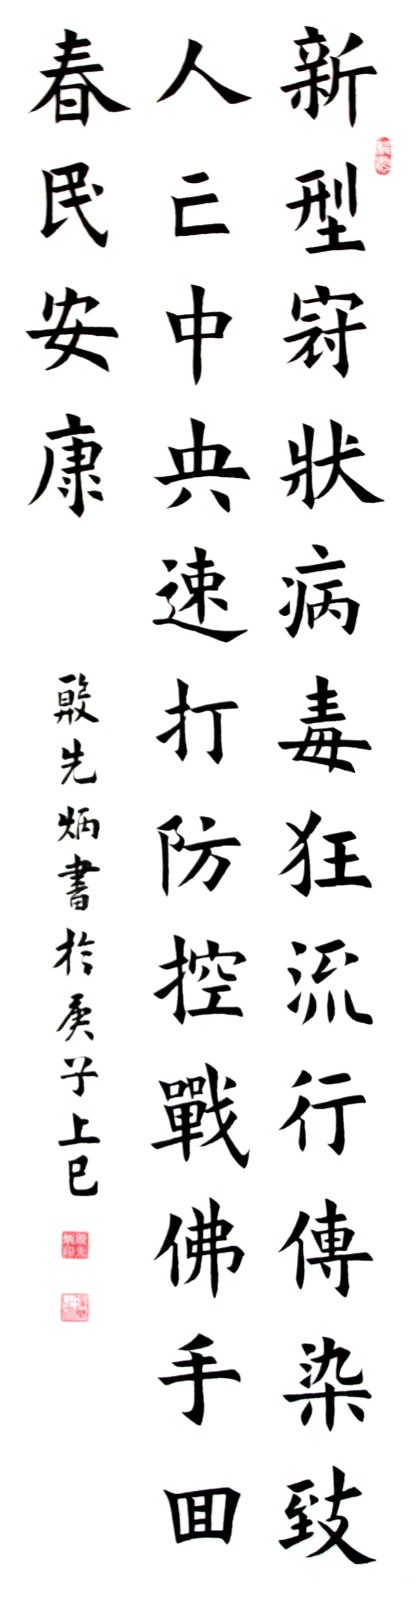 新型窛狀病毒狂流行傳染致
人亡中央速打防控戰佛手回
春民安康
殷先炳書於庚子上巳
殷先炳印